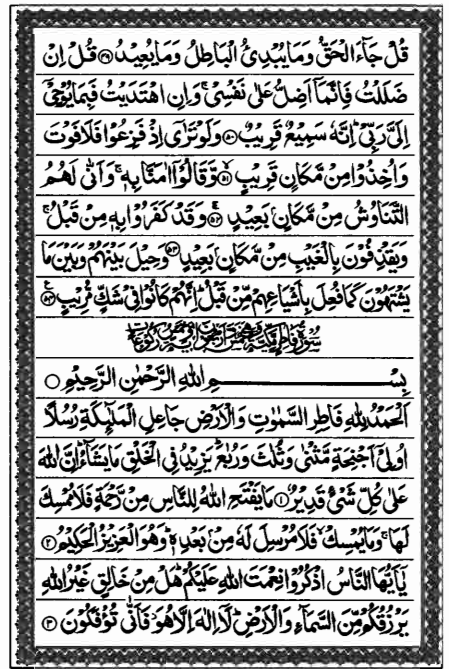 قُلْ جَآءَ الْحَقُّ وَمَا يُبْدِئُ الْبَاطِلُ وَمَا يُعِيْدُ ۴۹ قُلْ اِنْ
ضَلَلْتُ فَاِنَّمَاۤ اَضِلُّ عَلٰى نَفْسِيْ ۚ وَاِنِ اهْتَدَيْتُ فَبِمَا يُوْحِيْۤ
اِلَيَّ رَبِّيْ ؕ اِنَّهٗ سَمِيْعٌ قَرِيْبٌ ۵۰ وَلَوْ تَرٰۤى اِذْ فَزِعُوْا فَلَا فَوْتَ
وَاُخِذُوْا مِنْ مَّكَانٍ قَرِيْبٍ ۵۱ وَّقَالُوْۤا اٰمَنَّا بِهٖ ۚ وَاَنّٰى لَهُمُ
التَّنَاوُشُ مِنْ مَّكَانٍۭ بَعِيْدٍ ۵۲ وَّقَدْ كَفَرُوْا بِهٖ مِنْ قَبْلُ ۚ
وَيَقْذِفُوْنَ بِالْغَيْبِ مِنْ مَّكَانٍۭ بَعِيْدٍ ۵۳ وَحِيْلَ بَيْنَهُمْ وَبَيْنَ مَا
يَشْتَهُوْنَ كَمَا فُعِلَ بِاَشْيَاعِهِمْ مِّنْ قَبْلُ ؕ اِنَّهُمْ كَانُوْا فِيْ شَكٍّ مُّرِيْبٍ ۵۴
سُوْرَةُ فَاطِرٍ مَكِّيَّةٌ
بِسْمِ اللّٰهِ الرَّحْمٰنِ الرَّحِيْمِ ○
اَلْحَمْدُ لِلّٰهِ فَاطِرِ السَّمٰوٰتِ وَالْاَرْضِ جَاعِلِ الْمَلٰٓئِكَةِ رُسُلًا
اُولِيْۤ اَجْنِحَةٍ مَّثْنٰى وَثُلٰثَ وَرُبٰعَ ؕ يَزِيْدُ فِي الْخَلْقِ مَا يَشَآءُ ؕ اِنَّ اللّٰهَ
عَلٰى كُلِّ شَيْءٍ قَدِيْرٌ ۱ مَا يَفْتَحِ اللّٰهُ لِلنَّاسِ مِنْ رَّحْمَةٍ فَلَا مُمْسِكَ
لَهَا ۚ وَمَا يُمْسِكْ ۙ فَلَا مُرْسِلَ لَهٗ مِنْۢ بَعْدِهٖ ؕ وَهُوَ الْعَزِيْزُ الْحَكِيْمُ ۲
يٰۤاَيُّهَا النَّاسُ اذْكُرُوْا نِعْمَتَ اللّٰهِ عَلَيْكُمْ ؕ هَلْ مِنْ خَالِقٍ غَيْرُ اللّٰهِ
يَرْزُقُكُمْ مِّنَ السَّمَآءِ وَالْاَرْضِ ؕ لَاۤ اِلٰهَ اِلَّا هُوَ ۖ فَاَنّٰى تُؤْفَكُوْنَ ۳